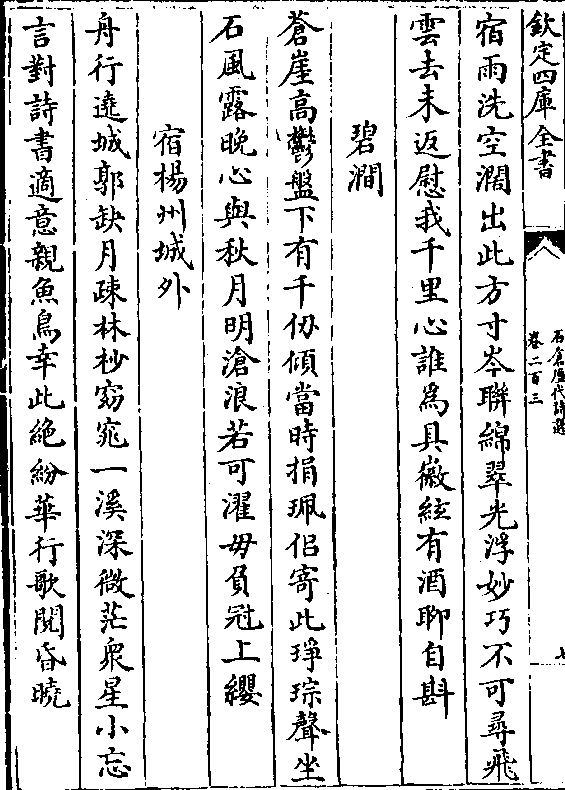 欽定四庫全書
石倉歷代詩選
卷二百三
七
宿雨洗空濶出此方寸岑聯綿翠光浮妙巧不可尋飛
雲去未返慰我千里心誰為具徽絃有酒聊自斟
碧澗
蒼崖高鬱盤下有千仞傾當時捐珮侶寄此琤琮聲坐
石風露晚心與秋月明滄浪若可濯毋負冠上纓
宿楊州城外
舟行遶城郭缺月疎林杪窈窕一溪深微茫衆星小忘
言對詩書適意親魚鳥幸此絶紛華行歌閲昏曉